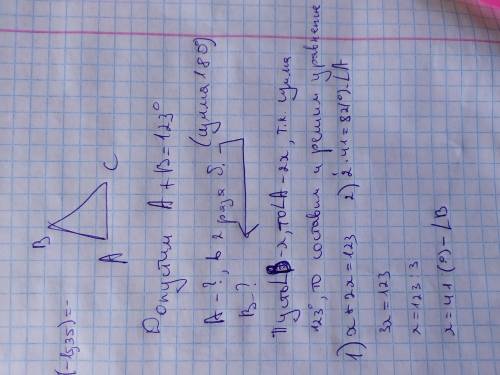 (-15,35)=-
B
A
C
Допустим A + B = 123°
A - ?, в 2 раза б. (сумма 180)
B - ?
Пусть ∠B - x, то ∠A - 2x, т.к. сумма
123°, то составим и решим уравнение
1) x + 2x = 123
3x = 123
x = 123 : 3
x = 41 (°) - ∠B
2) 2 · 41 = 82(°) - ∠A